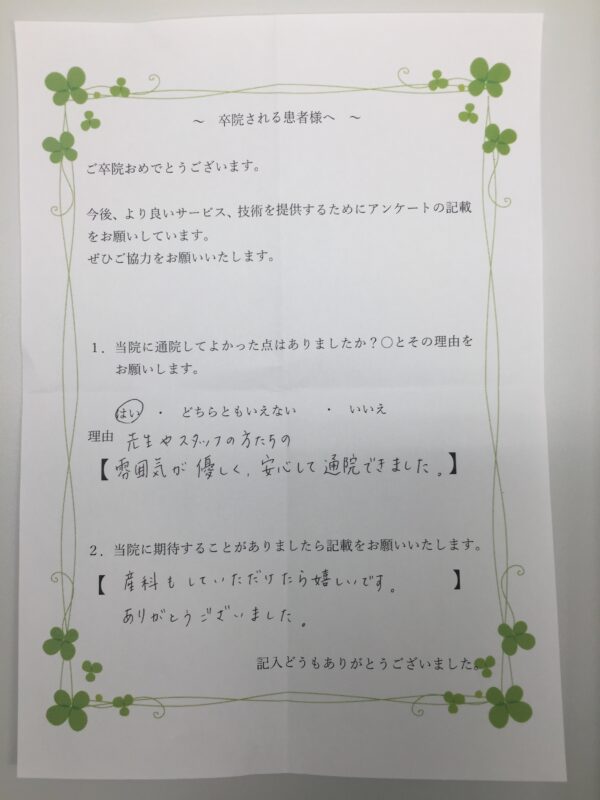 ～　卒院される患者様へ　～
ご卒院おめでとうございます。
今後、より良いサービス、技術を提供するためにアンケートの記載
をお願いしています。
ぜひご協力をお願いいたします。
１．当院に通院してよかった点はありましたか？○とその理由を
お願いします。
はい　・　どちらともいえない　・　いいえ
理由　先生やスタッフの方たちの
【雰囲気が優しく、安心して通院できました。】
２．当院に期待することがありましたら記載をお願いいたします。
【産科もしていただけたら嬉しいです。】
ありがとうございました。
記入どうもありがとうございました。